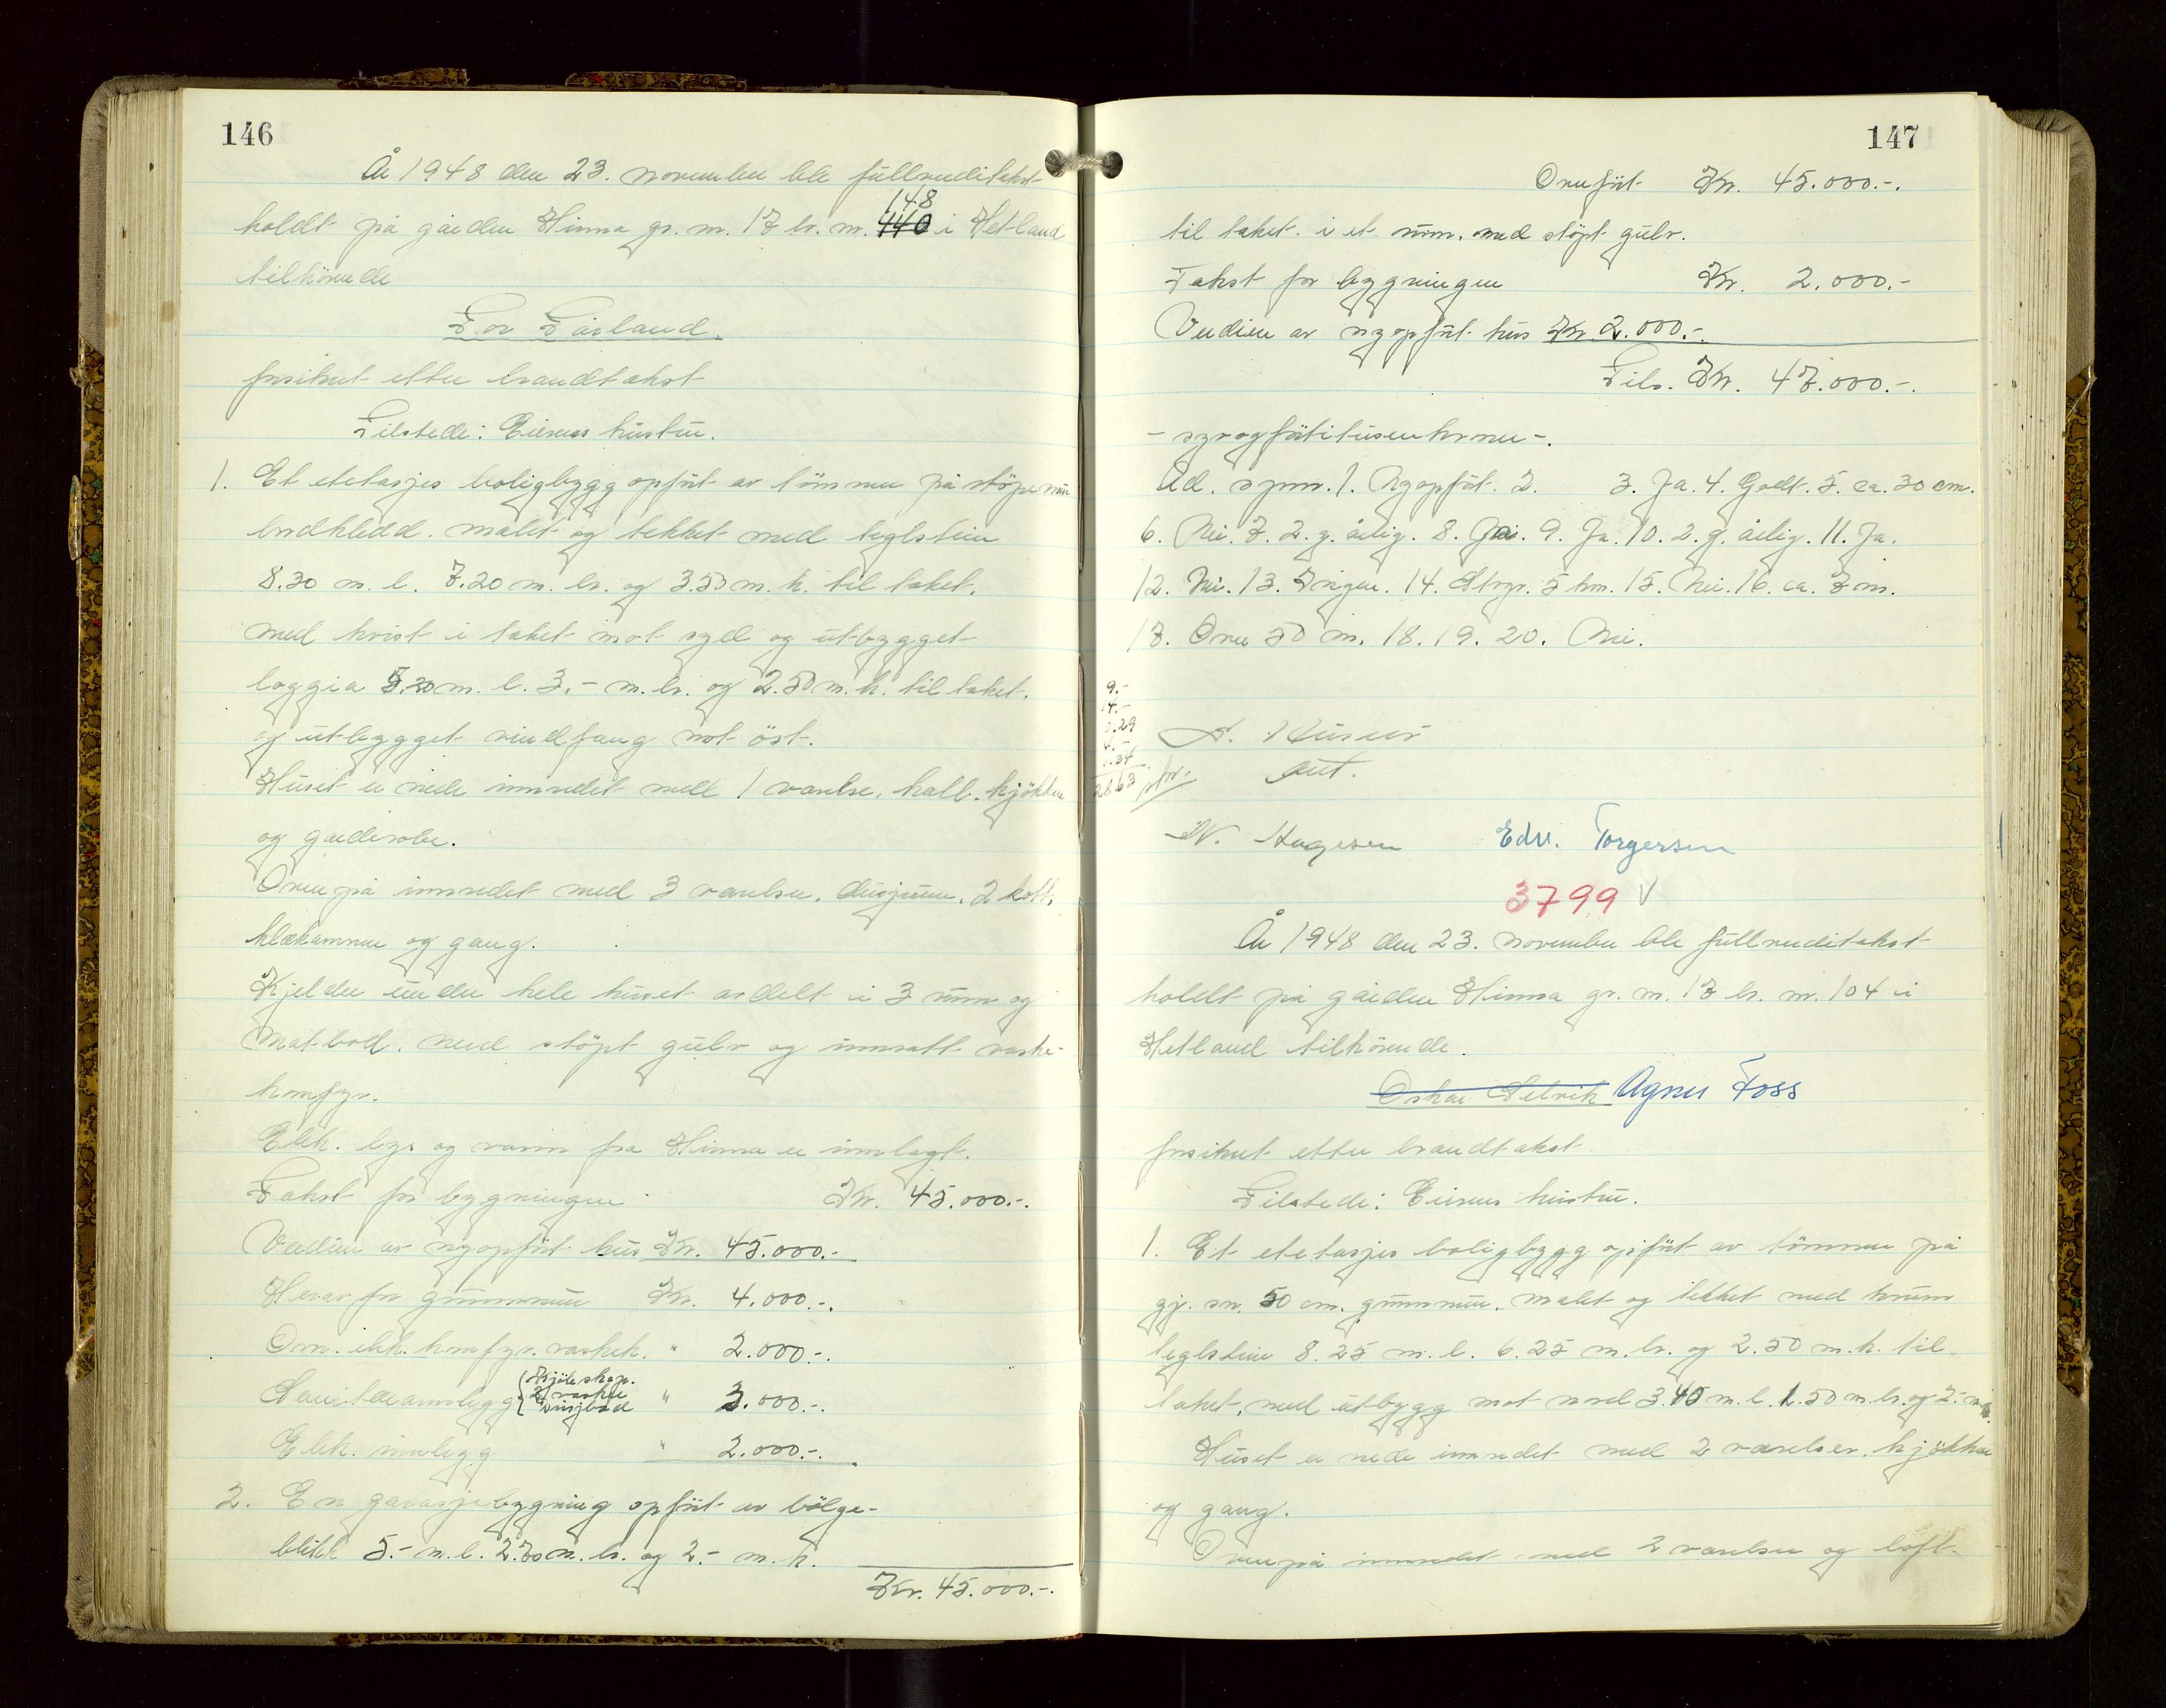 146
År 1948 den 23. november ble fullverditakst
148
holdt på gården Hinna gr. nr. 17 br. nr. 440 i Hetland
tilhörende
Tor Tårland.
forsikret etter brandtakst
Tilstede: Eierens hustru.
1. Et etetasjes boligbygg opfört av tömmer på stöpemur
bordkledd, malet og tekket med teglstein
8.30 m. l. 7.20 m. br. og 3.50 m. h. til taket.
med kvist i taket mot syd og utbygget
loggia 5.20 m. l. 3.- m. br. og 2.50 m. h. til taket.
og utbygget vindfang mot öst.
Huset er nede innredet med 1 værelse, hall, kjökken
og garderobe.
Ovenpå innredet med 3 værelser, dusjrum, 2 kott,
klækammer og gang.
Kjelder under hele huset avdelt i 3 rum og
matbod. med stöpt gulv og innsatt vaske-
komfyr.
Elek. lys og vann fra Hinna er innlagt.
Takst for bygningen Kr. 45.000.-.
Verdien av nyopfört hus Kr. 45.000.-
Herav for grunnmur Kr. 4.000.-.
Ovn. elek. komfyr. vaskek. " 2.000.-.
Sanitæranlegg { Kjöleskap. 2 vasker dusjbad " 3.000.-.
Elek. innlegg " 2.000.-.
2. En garasjebygning opfört av bölge-
blikk 5.- m. l. 2.70 m. br. og 2.- m. h.
Kr. 45.000.-.
147
Overfört Kr. 45.000.-.
til taket. i et rum. med stöpt gulv.
Takst for bygningen Kr. 2.000.-
Verdien av nyopfört hus Kr. 2.000.-.
Tils. Kr. 47.000.-.
- syvogförtitusenkroner -.
Ad. spm. 1. Nyopfört. 2. 3. Ja. 4. Godt. 5. ca. 30 cm.
6. Nei. 7. 2. g. årlig. 8. Nei. 9. Ja. 10. 2. g. årlig. 11. Ja.
12. Nei. 13. Ingen. 14. Stvgr. 5 km. 15. Nei. 16. ca. 7 m.
17. Over 50 m. 18. 19. 20. Nei.
9.-
14.-
0.29
4.-
1.34
28.63
aut.
N. Hagesen Edv. Torgersen
3799 V
År 1948 den 23. november ble fullverditakst
holdt på gården Hinna gr. nr. 17 br. nr. 104 i
Hetland tilhörende.
Oskar Selvik Agnes Foss
forsikret etter brandtakst
Tilstede: Eierens hustru.
1. Et etetasjes boligbygg opfört av tömmer på
gj. sn. 50 cm. grunnmur, malet og tekket med krum
teglstein 8.25 m. l. 6.25 m. br. og 2.50 m. h. til
taket, med utbygg mot nord 3.45 m. l. 1.50 m. br. og 2.- m. h.
Huset er nede innredet med 2 værelser, kjökken
og gang.
Ovenpå innredet med 2 værelser og loft.